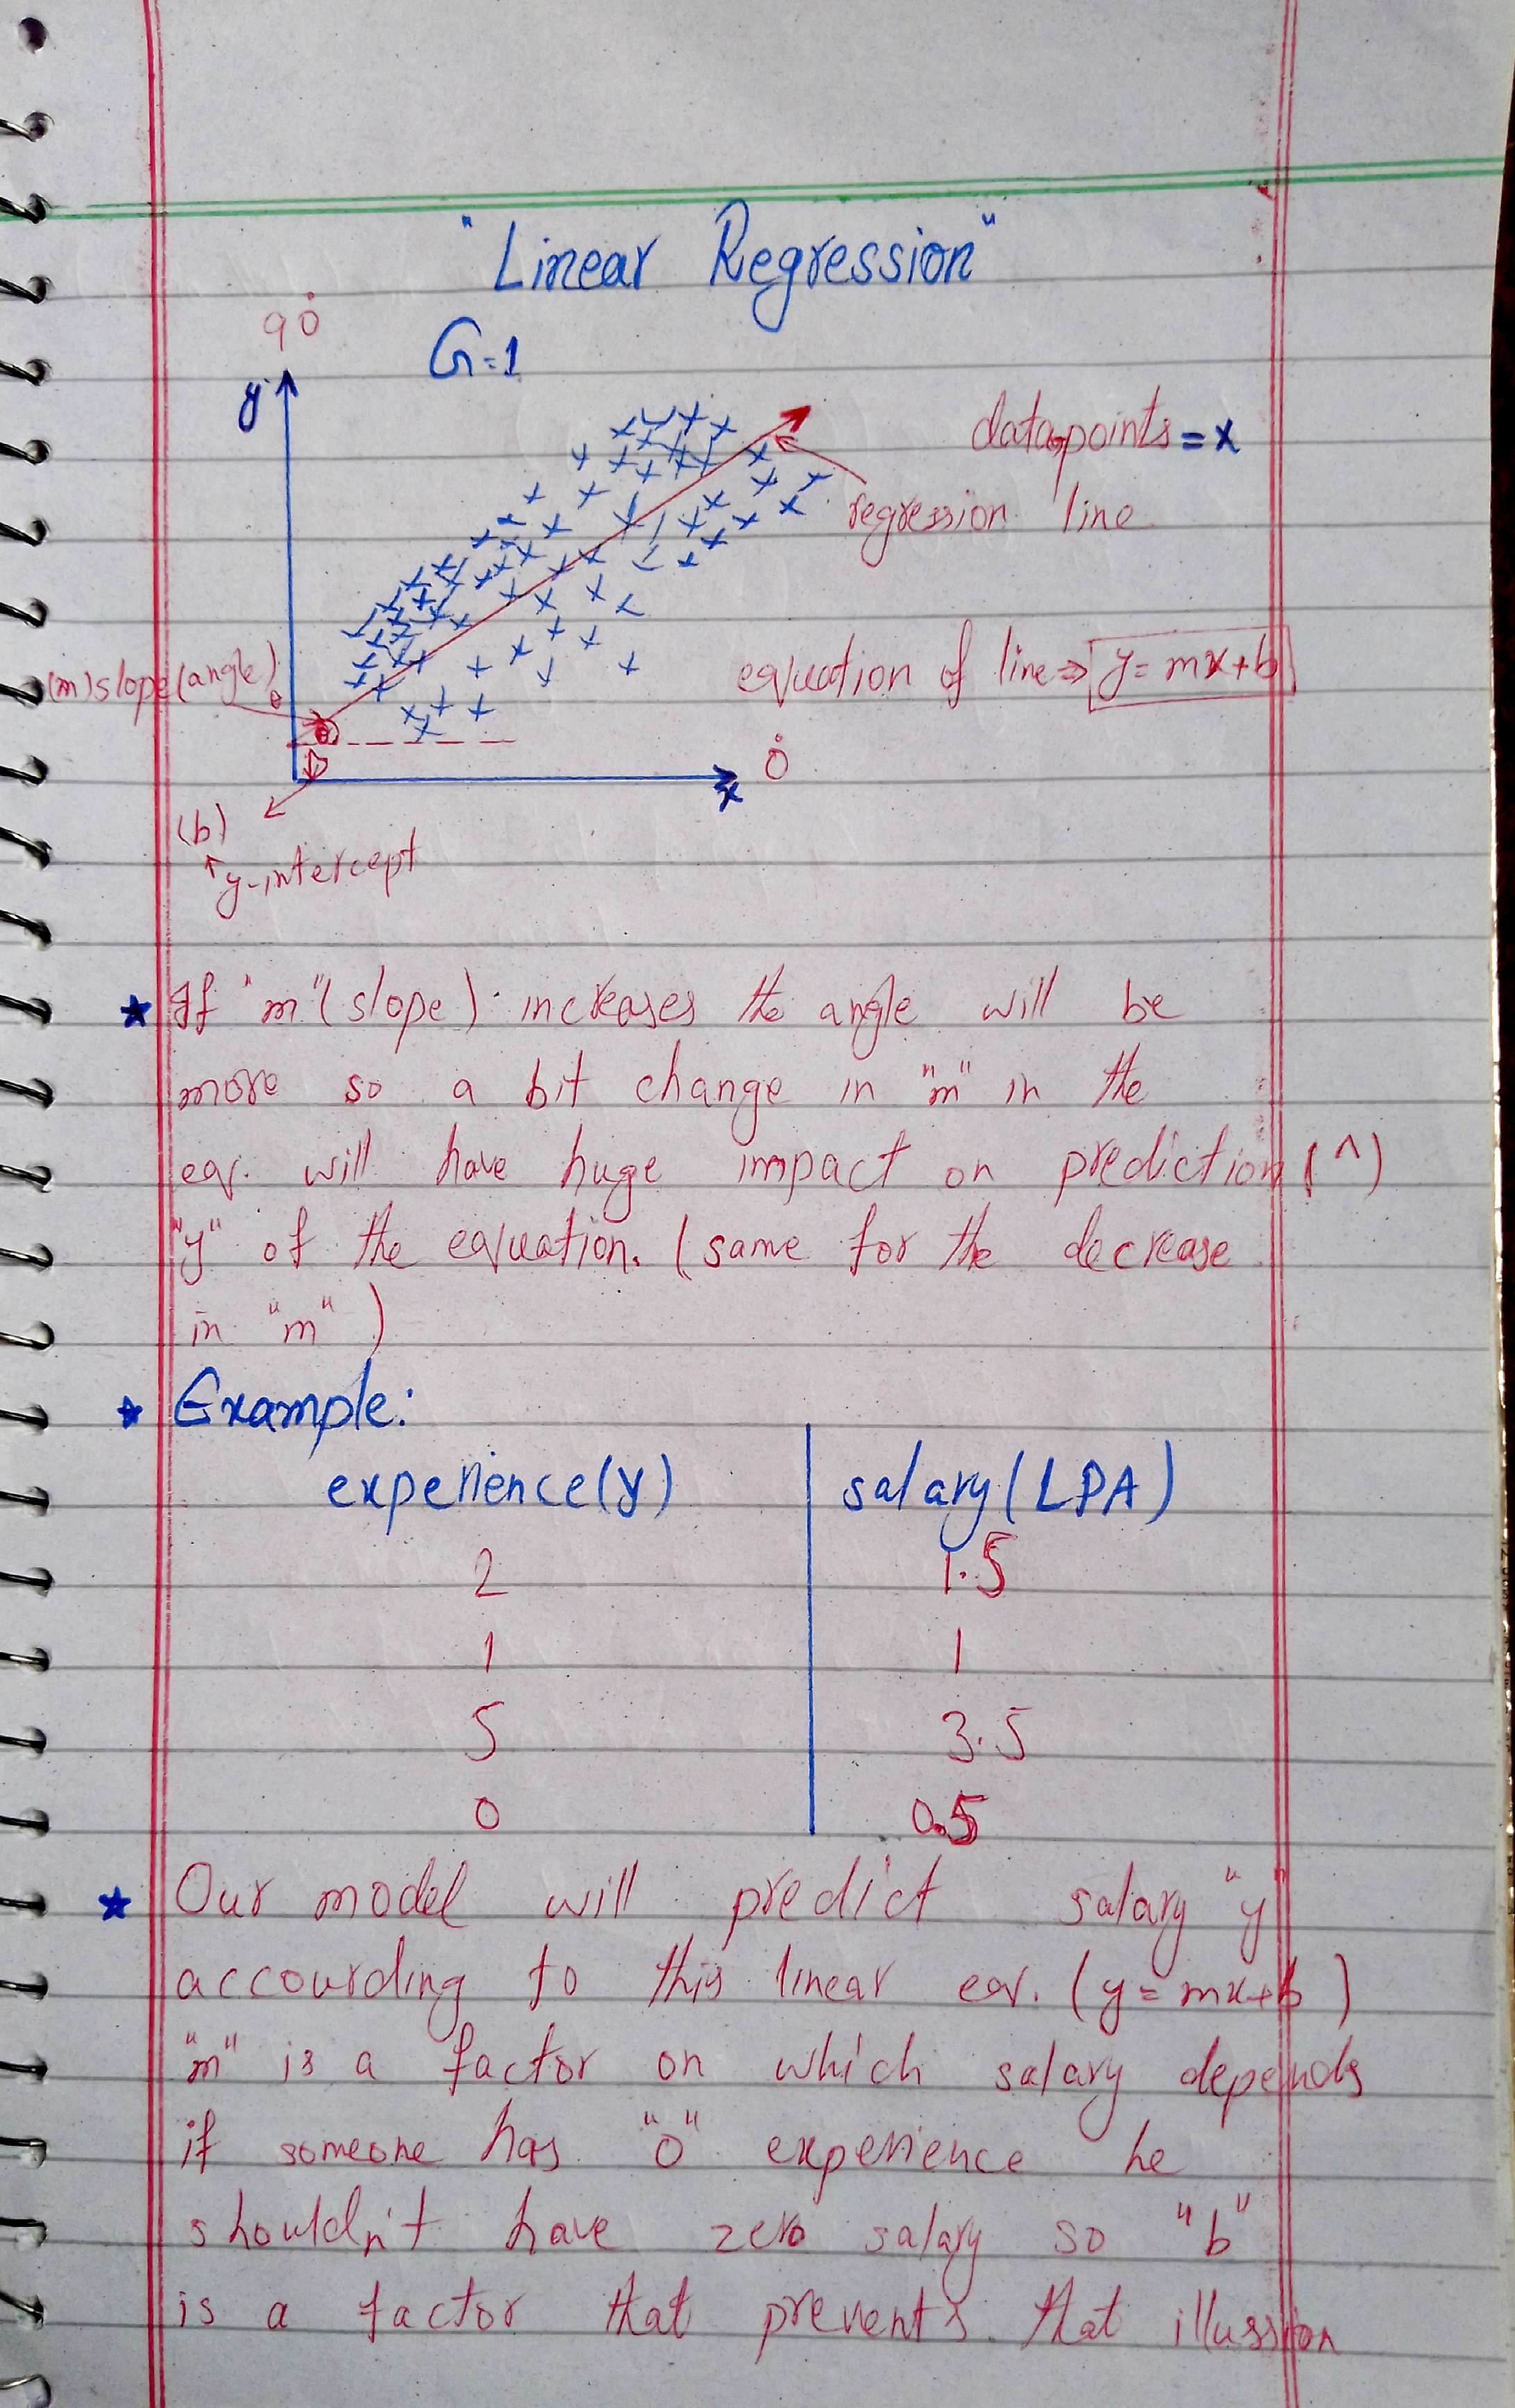 "Linear Regression"
90°
G=1
y
datapoints = x
regression line
(m) slope (angle)
θ
equation of line ⇒ y = mx+b
0°
x
(b)
y-intercept
If "m" (slope) increases the angle will be
more so a bit change in "m" in the
eq. will have huge impact on prediction (^)
"y" of the equation. (same for the decrease
in "m")
Example:
experience(y) salary(LPA)
2 1.5
1 1
5 3.5
0 0.5
Our model will predict salary "y"
accourding to this linear eq. (y = mx+b)
"m" is a factor on which salary depends
if someone has "0" experience he
shouldn't have zero salary so "b"
is a factor that prevents that illussion